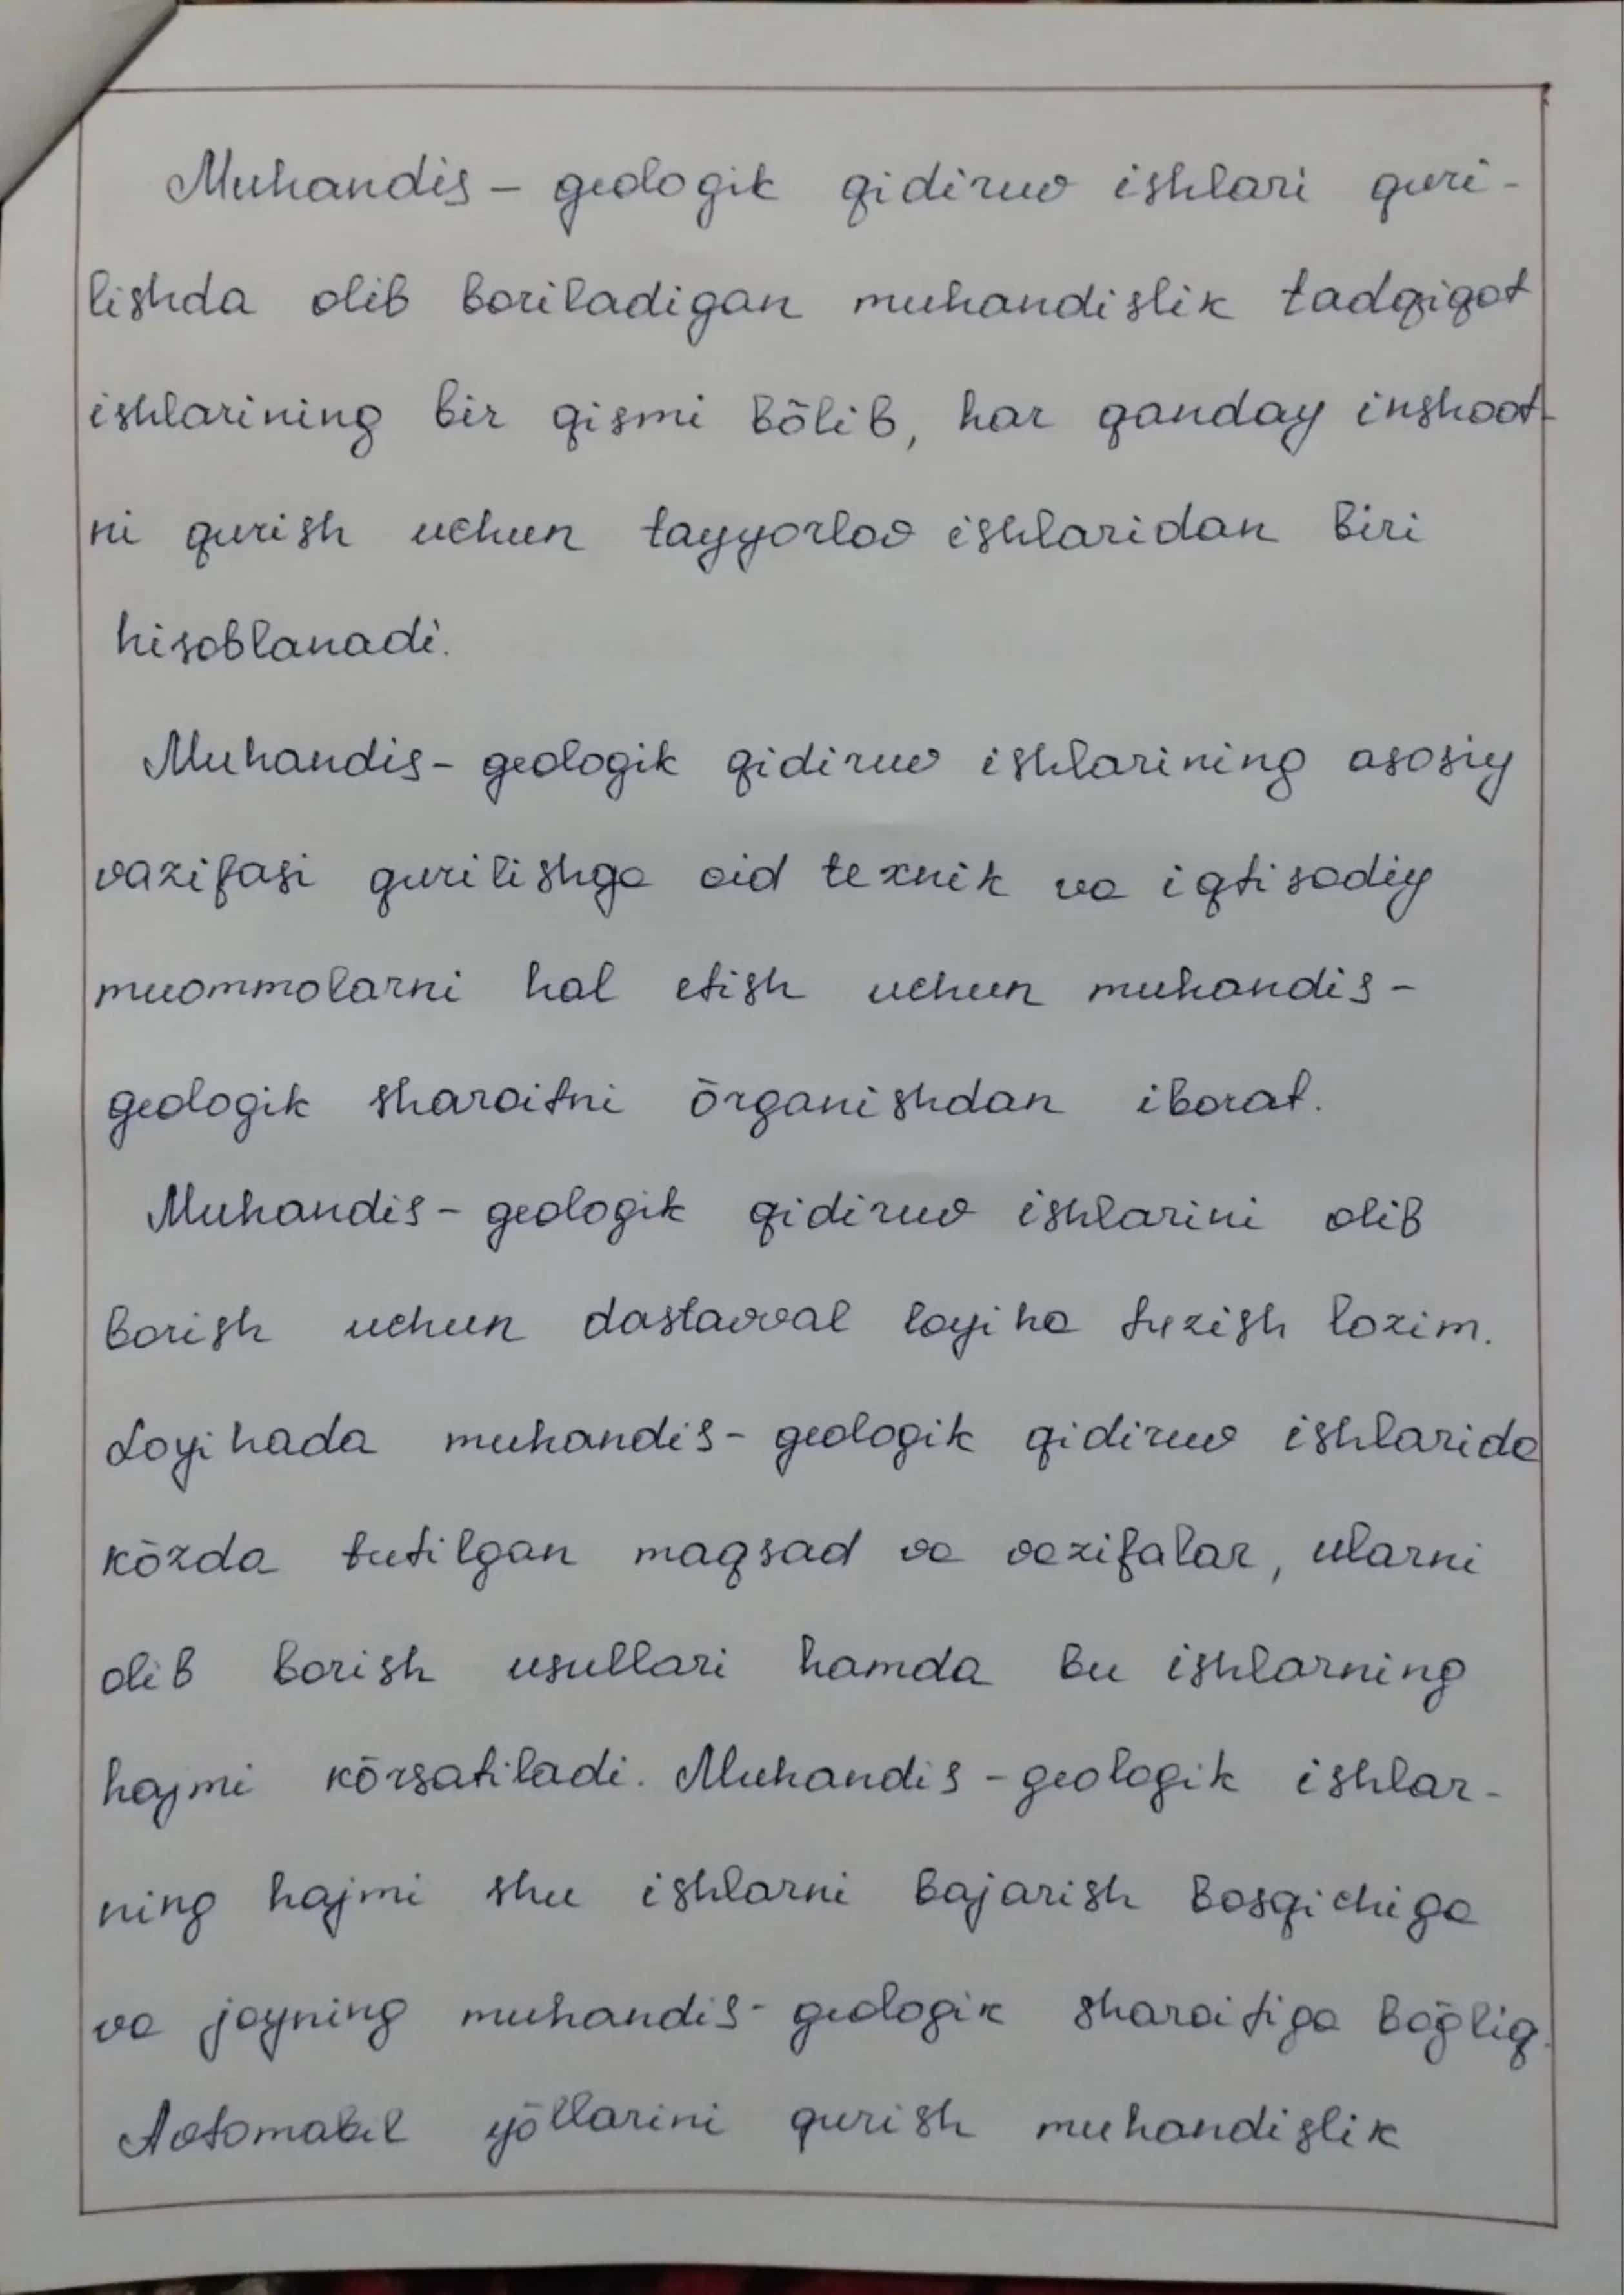 Muhandis - geologik qidiruv ishlari quri-
lishda olib boriladigan muhandislik tadqiqot
ishlarining bir qismi bōlib, har qanday inshoot-
ni qurish uchun tayyorlov ishlaridan biri
hisoblanadi.
Muhandis - geologik qidiruv ishlarining asosiy
vazifasi qurilishga oid texnik va iqtisodiy
muommolarni hal etish uchun muhandis -
geologik sharoitni ōrganishdan iborat.
Muhandis - geologik qidiruv ishlarini olib
borish uchun dastavval loyiha tuzish lozim.
Loyihada muhandis - geologik qidiruv ishlarida
kōzda tutilgan maqsad va vazifalar, ularni
olib borish usullari hamda bu ishlarning
hajmi kōrsatiladi. Muhandis - geologik ishlar-
ning hajmi shu ishlarni bajarish bosqichiga
va joyning muhandis - geologik sharoitiga bōḡliq.
Avtomabil yōllarini qurish muhandislik